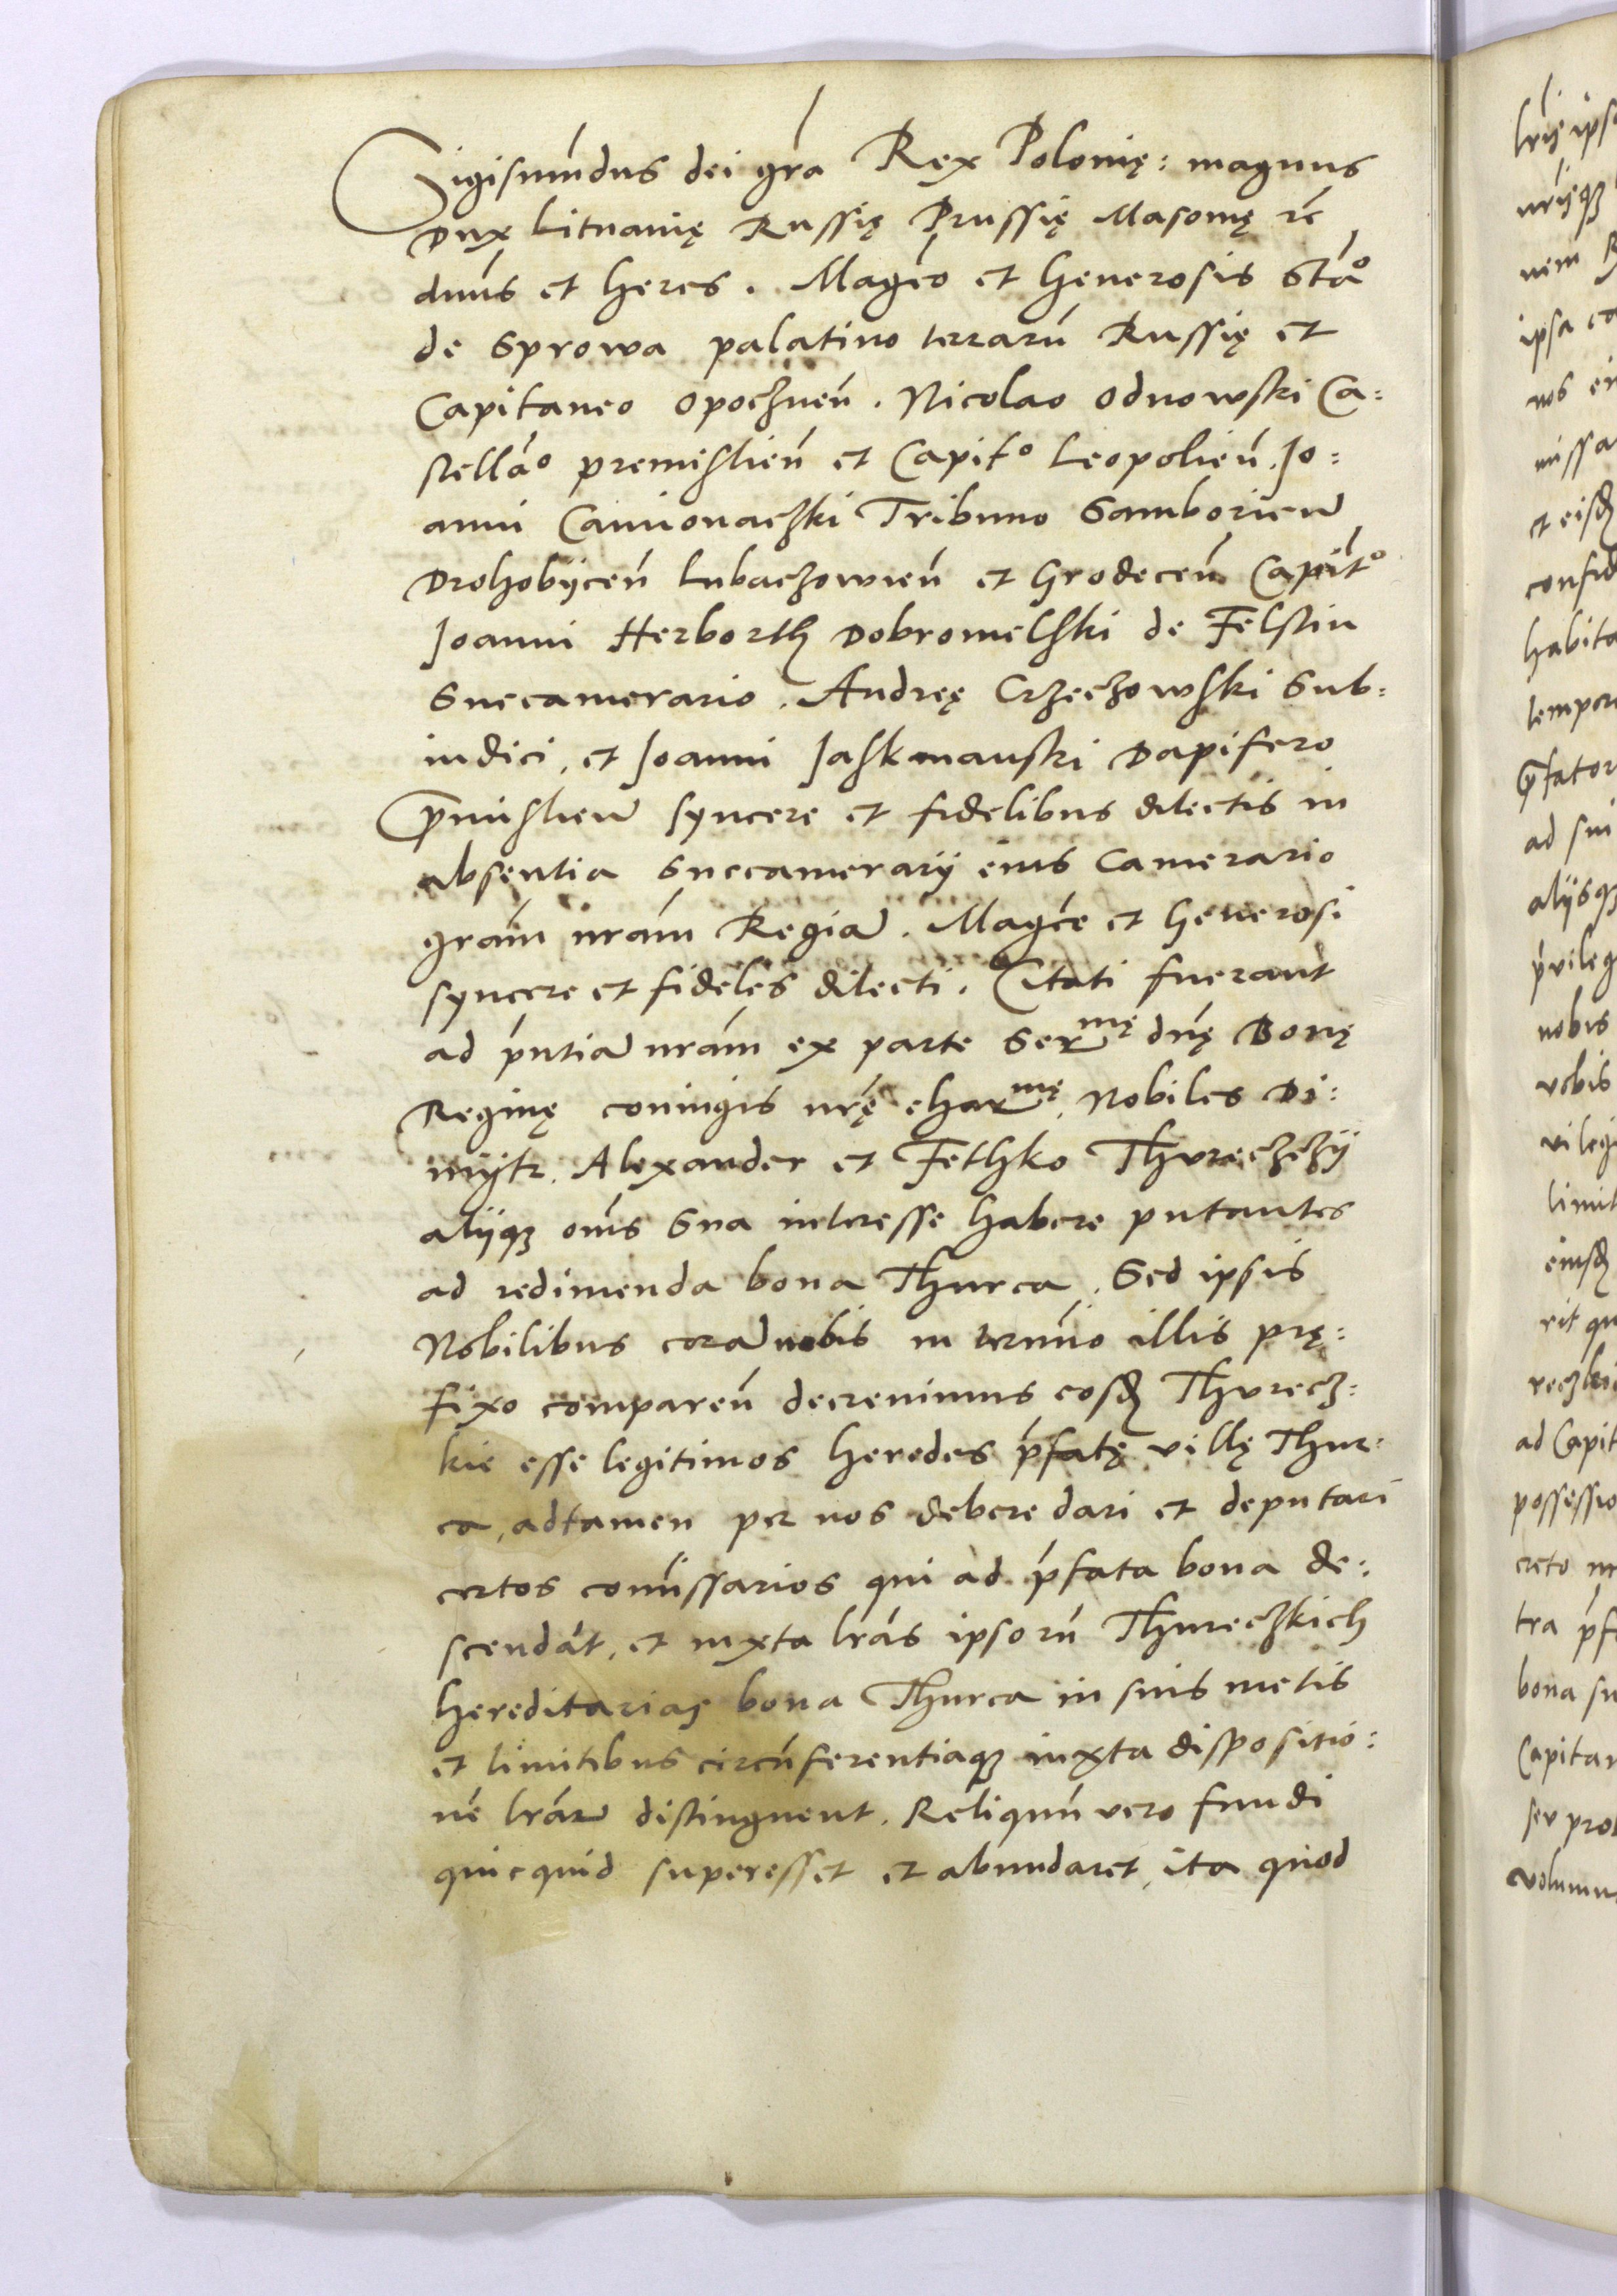 Sigismundus dei gra̅ Rex Polonię: magnus
Dux Lituanię Russię Prussię Masouię rc̅
dnu̅s et heres. Magco̅ et Generosis Sta̅o
de Sprowa palatino terraru̅ Russię et
Capitaneo Opoczneń. Nicolao Odnowski Ca:
stella̅o premislień et Capito Leopolień. Jo:
anni Camionaczki Tribuno Samborień
Drohobÿceń Lubaczowień et Grodeceń Capit̅o
Joanni Herborth Dobromelski de Felstin
Succamerario. Andreę Crzeczowski Sub:
iudici, et Joanni Jaskmanski Dapifero
P̅mislień syncere et fidelibus dilectis in
absentia Succamerarÿ eius Camerario
gra̅m nra̅m Regia̅. Magce̅ et Generosi
syncere et fideles dilecti. Citati fuerant
ad pn̅tia̅ nra̅m ex parte Sermę dn̅ę Bonę
Reginę coniugis nr̅ę charmę. Nobiles Di:
mÿtr. Alexander et Fethko Thvreczhÿ
alÿqꝫ om̅s Sua interesse habere putantes
ad redimenda bona Thurca. Sed ipsis
Nobilibus cora̅ nobis in term̅io illis prę:
fixo compareń decreuimus eosdꝫ Thvrecz:
kie esse legitimos heredes p̅fatę villę Thur:
ca, adtamen per nos debere dari et deputari
certos com̅issarios qui ad p̅fata bona de:
scenda̅t, et iuxta lr̅as ipsoru̅ Thureczkich
hereditarias bona Thurca in suis metis
et limitibus circu̅ferentiaqꝫ iuxta dispositio:
ne̅ lr̅ar̅ distinguent. Reliquu̅ vero fundi
quicquid superesset et abundaret, ita quod